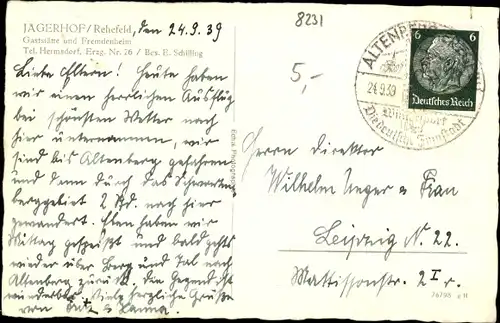 8231
JÄGERHOF/Rehefeld, den 24.9.39
Gaststätte und Fremdenheim
Tel. Hermsdorf, Erzg. Nr. 76 / Bes. E. Schilling
5,-
Liebe Eltern! Heute haben
wir einen herrlichen Ausflug
bei schönstem Wetter nach
hier unternommen, wir
sind bis Altenberg gefahren
und dann durch das
berggebiet 2 Std. nach hier
gewandert. Eben haben wir
Mittag gespeist und bald gehts
wieder über Berg und Tal nach
Altenberg zurück. Die Gegend ist
wunderbar. Viele herzliche Grüße
von & Hanna.
ALTENBERG
24.9.39
6 6
Deutsches Reich
Herrn Direktor
Wilhelm Unger & Frau
Leipzig N. 22.
Mattissonstr. 2 I r.